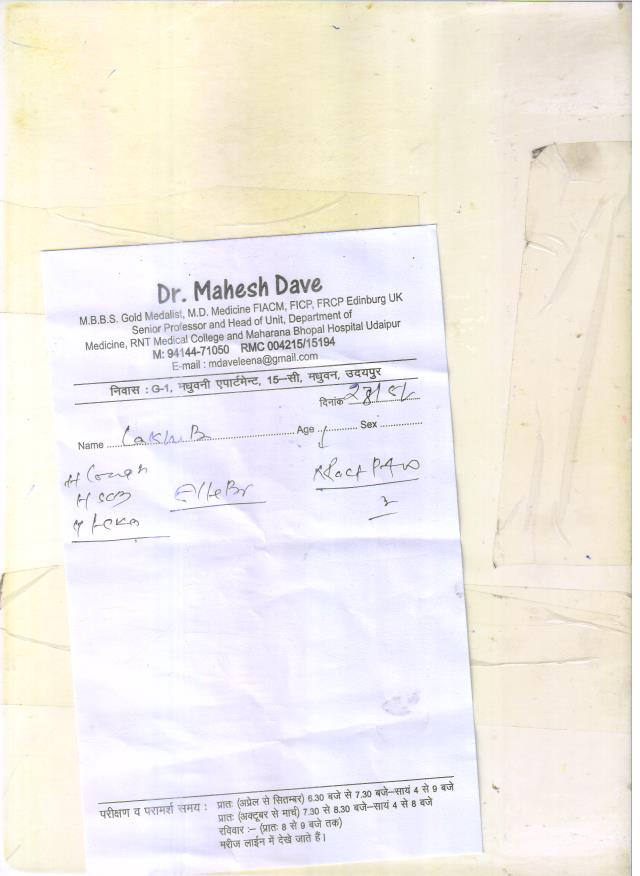 Dr. Mahesh Dave
M.B.B.S. Gold Medalist, M.D. Medicine FIACM, FICP, FRCP Edinburg UK
Senior Professor and Head of Unit, Department of
Medicine, RNT Medical College and Maharana Bhopal Hospital Udaipur
M: 94144-71050 RMC 004215/15194
E-mail : mdaveleena@gmail.com
निवास : G-1, मधुवनी एपार्टमेन्ट, 15–सी, मधुवन, उदयपुर
दिनांक
Name ........ Age ........ Sex ........
परीक्षण व परामर्श समय : प्रातः (अप्रेल से सितम्बर) 6.30 बजे से 7.30 बजे–सायं 4 से 9 बजे
प्रातः (अक्टूबर से मार्च) 7.30 से 8.30 बजे–सायं 4 से 8 बजे
रविवार :– (प्रातः 8 से 9 बजे तक)
मरीज लाईन में देखे जाते हैं।